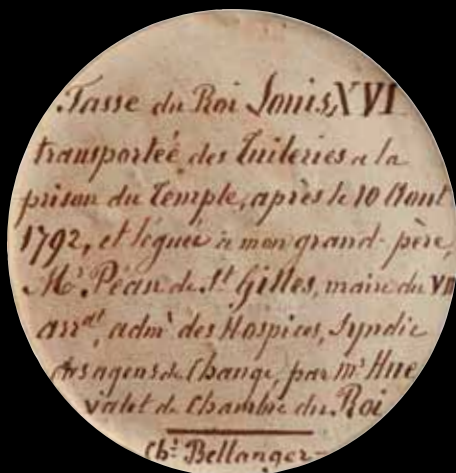 Tasse du Roi Louis XVI
transporteé des Tuileries a la
prison du Temple, après le 10 Aout
1792, et léguée à mon grand-père,
Mr. Péan de St Gilles, maire du VII
arrdt, admr des Hospices, Syndic
des agens de Change, par mr Hue
valet de Chambre du Roi
Ch: Bellanger-